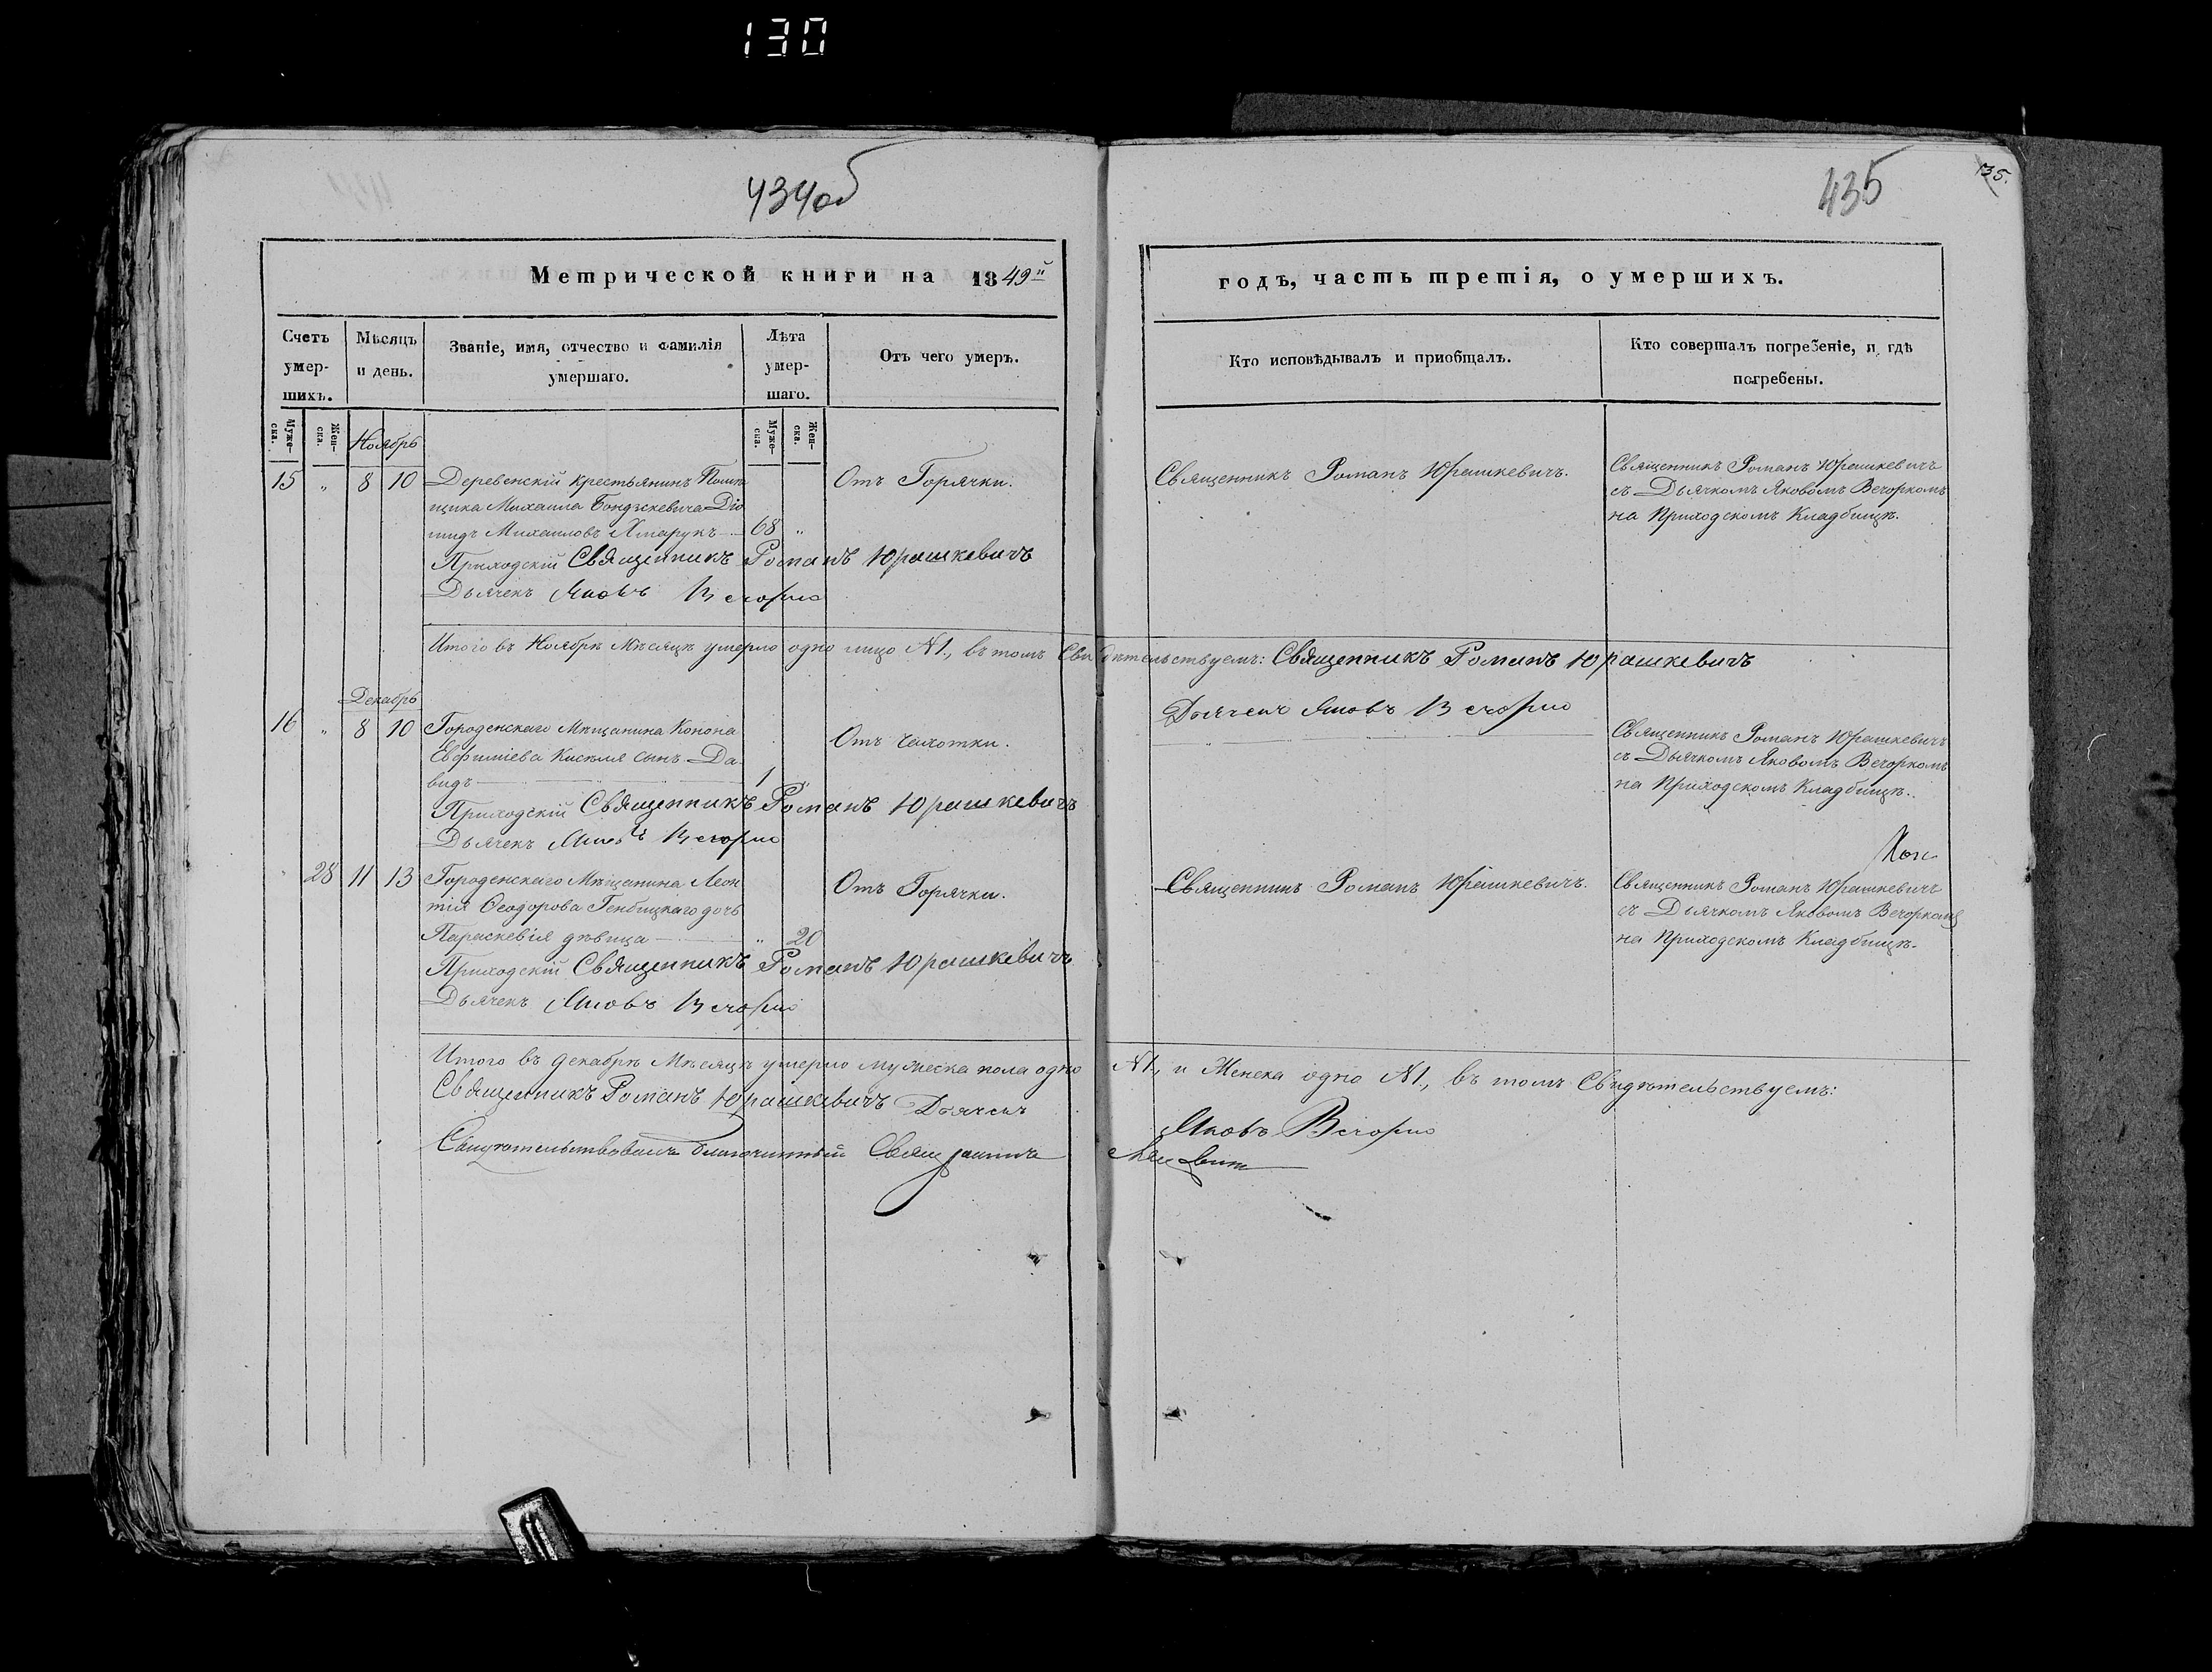 130
434об
435
135.
Метрической книги на 1849й
годъ, часть третія, о умершихъ.
Счетъ умер-шихъ.
Мѣсяцъ и день.
Званіе, имя, отчество и фамилія умершаго.
Лѣта умер-шаго.
Отъ чего умеръ.
Кто исповѣдывалъ и пріобщалъ.
Кто совершалъ погребеніе, и гдѣ погребены.
Муже-ска.
Жен-ска.
Ноябрь
Муже-ска.
Жен-ска.
15 " 8 10 Деревенскій крестьянинъ Помѣ
щика Михаила
мидъ Михаиловъ Хмарукъ 68 "
Отъ Горячки.
Священникъ Романъ Юрашкевичъ.
Священникъ Романъ Юрашкевичъ
съ Дьячкомъ Яковомъ Вечоркомъ
на Приходскомъ Кладбищѣ.
Приходскій Священникъ Романъ Юрашкевичъ
Дьячекъ Яковъ Вечорко
Итого въ Ноябрѣ Мѣсяцѣ умерло одно лицо №1., въ томъ Свидѣтельствуемъ: Священникъ Романъ Юрашкевичъ
Дьячекъ Яковъ Вечорко
Декабрь
16 " 8 10 Городенскаго Мѣщанина Конона
Евфиміева Киселя сынъ Да
видъ 1 "
Отъ чахотки.
Священникъ Романъ Юрашкевичъ
съ Дьячкомъ Яковомъ Вечоркомъ
на Приходскомъ Кладбищѣ.
Приходскій Священникъ Романъ Юрашкевичъ
Дьячекъ Яковъ Вечорко
" 28 11 13 Городенскаго Мѣщанина Леон
тія Ѳеодорова Генбицкаго дочь
Параскевія дѣвица " 20
Отъ Горячки.
Священникъ Романъ Юрашкевичъ.
Священникъ Романъ Юрашкевичъ
съ Дьячкомъ Яковомъ Вечоркомъ
на Приходскомъ Кладбищѣ.
Приходскій Священникъ Романъ Юрашкевичъ
Дьячекъ Яковъ Вечорко
Итого въ декабрѣ Мѣсяцѣ умерло мужеска пола одно №1., и Женска одно №1., въ томъ Свидѣтельствуемъ:
Священникъ Романъ Юрашкевичъ Дьячекъ Яковъ Вечорко
Свидѣтельствовалъ благочинный Священникъ